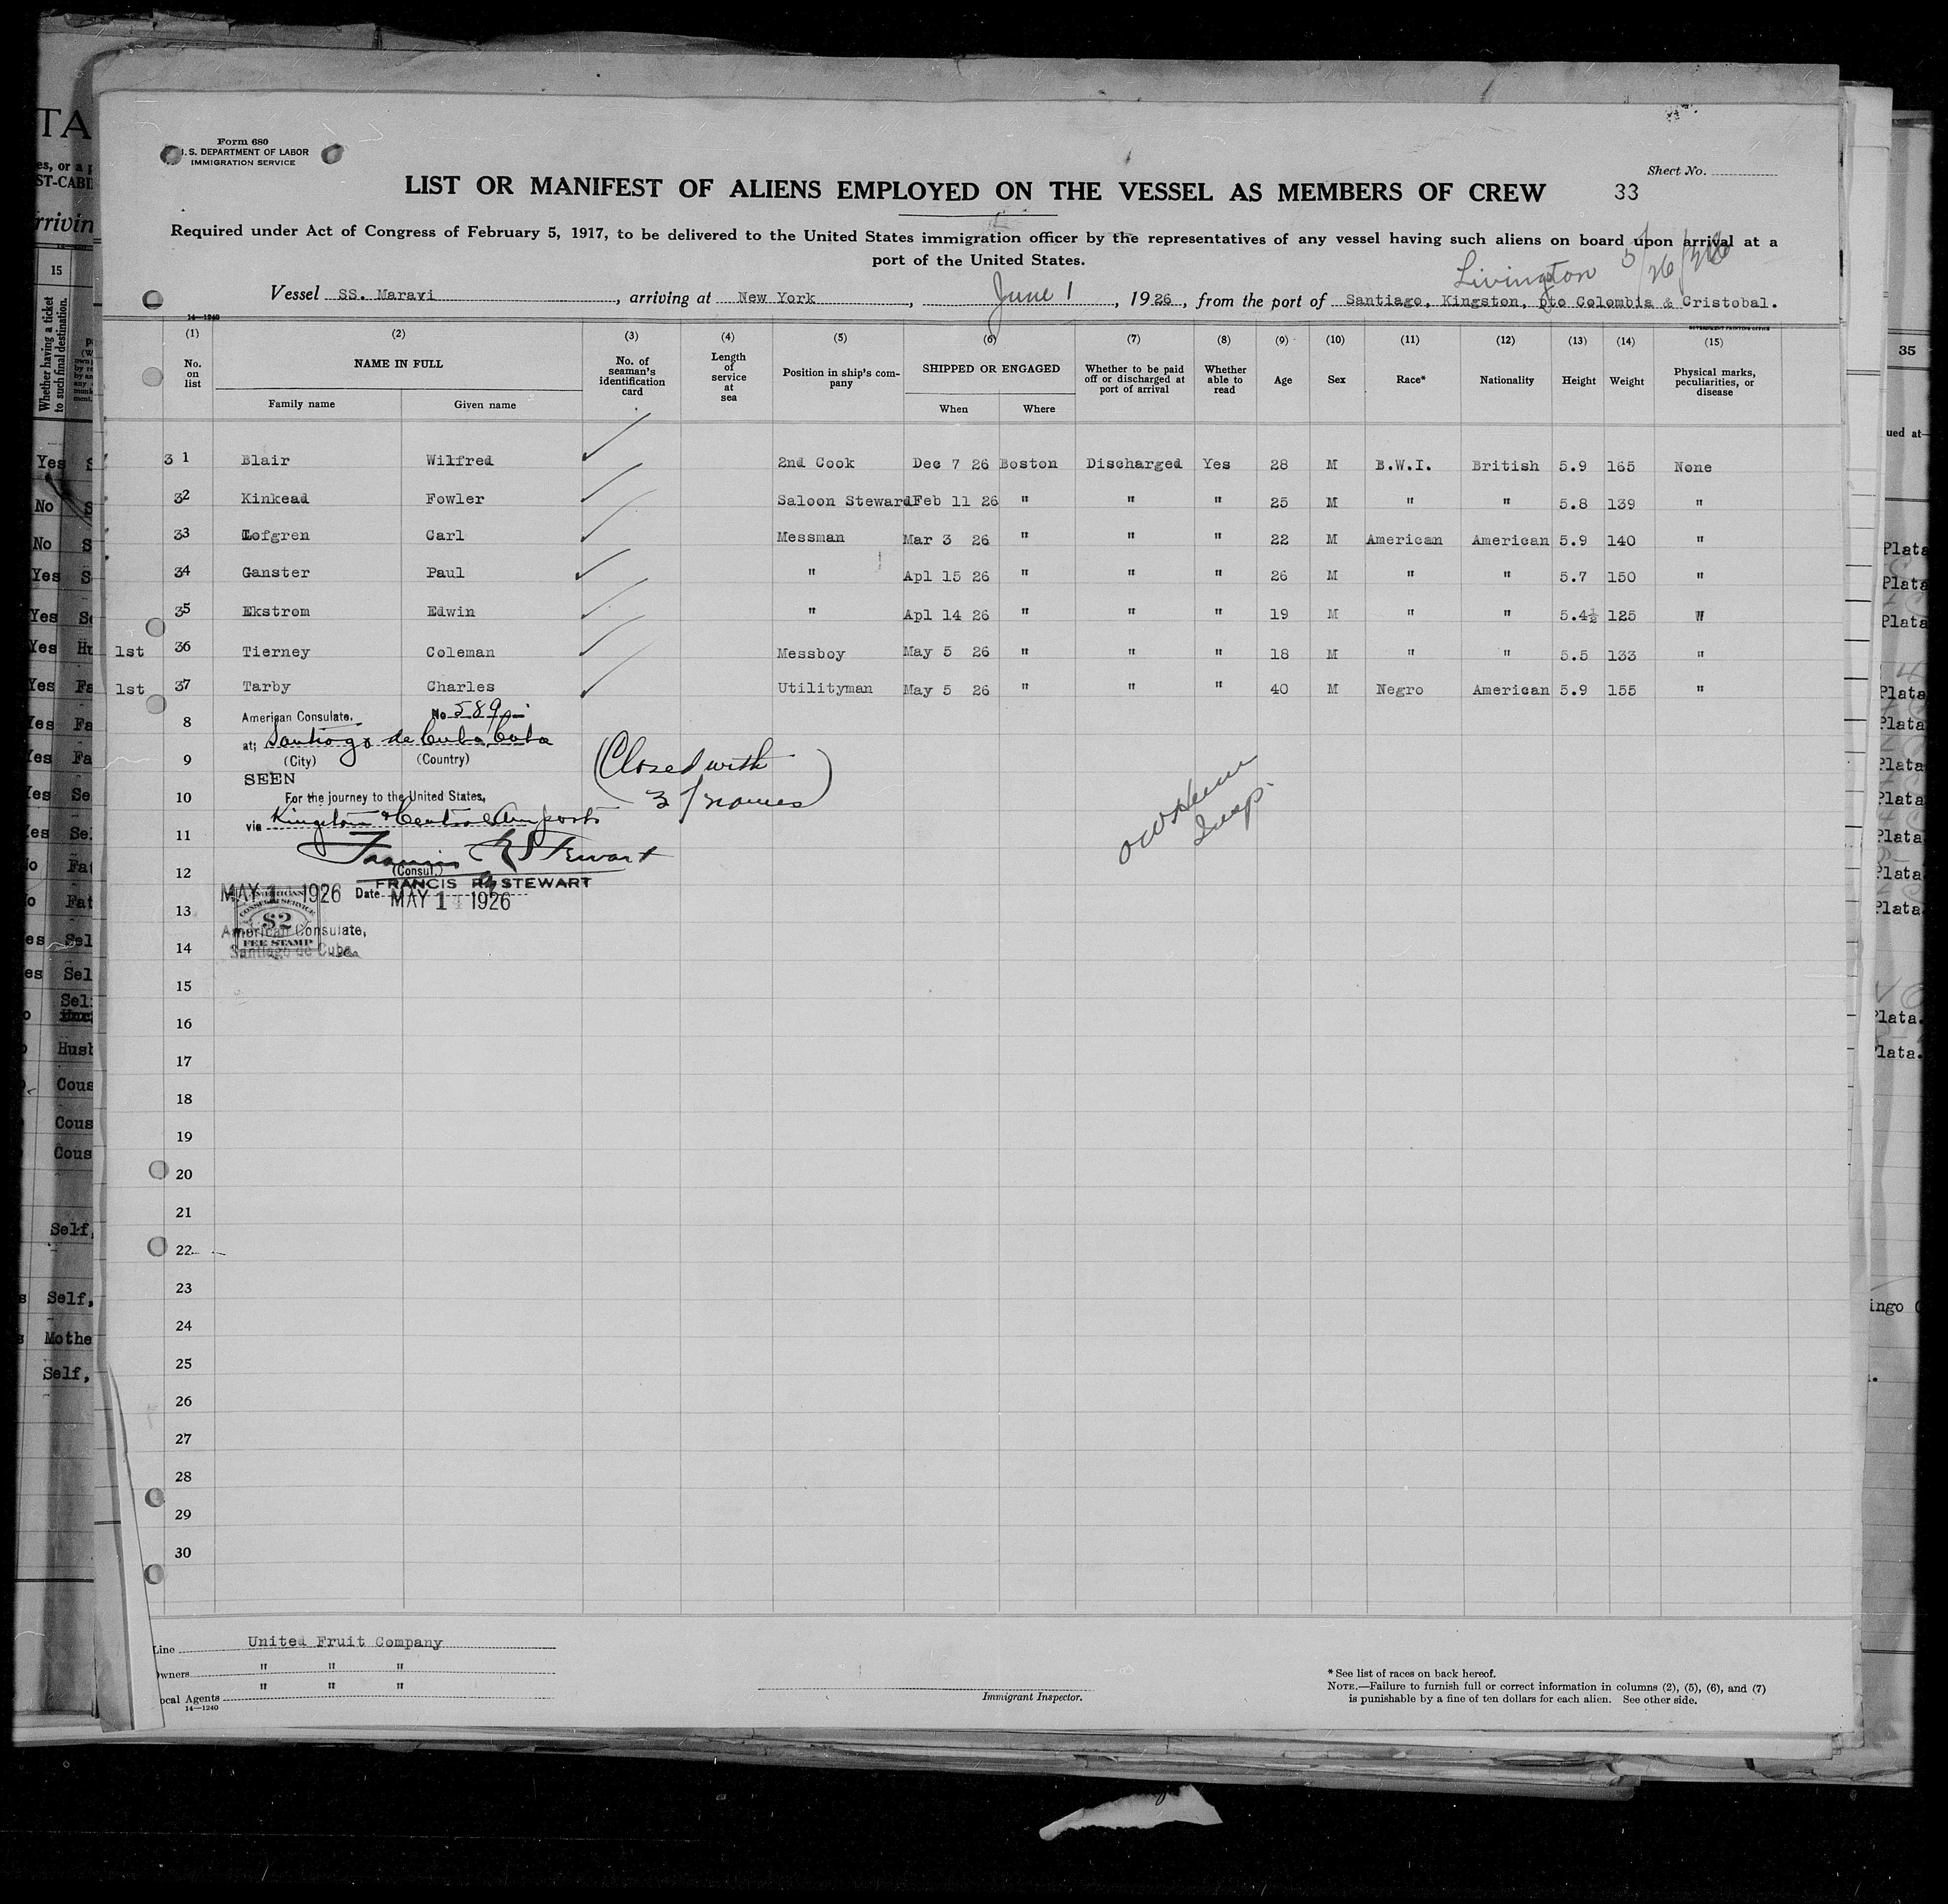 Form 680
U. S. DEPARTMENT OF LABOR
IMMIGRATION SERVICE
Sheet No.
LIST OR MANIFEST OF ALIENS EMPLOYED ON THE VESSEL AS MEMBERS OF CREW 33
Required under Act of Congress of February 5, 1917, to be delivered to the United States immigration officer by the representatives of any vessel having such aliens on board upon arrival at a
port of the United States.
Livingston 5/26/26
Vessel SS. Maravi, arriving at New York, June 1, 1926, from the port of Santiago, Kingston, pto Colombia & Cristobal.
14—1240
GOVERNMENT PRINTING OFFICE
(1) (2) (3) (4) (5) (6) (7) (8) (9) (10) (11) (12) (13) (14) (15)
No. on list
NAME IN FULL
Family name
Given name
No. of seaman's identification card
Length of service at sea
Position in ship's company
SHIPPED OR ENGAGED
When
Where
Whether to be paid off or discharged at port of arrival
Whether able to read
Age
Sex
Race*
Nationality
Height
Weight
Physical marks, peculiarities, or disease
3 1 Blair Wilfred 2nd Cook Dec 7 26 Boston Discharged Yes 28 M B.W.I. British 5.9 165 None
32 Kinkead Fowler Saloon Steward Feb 11 26 " " " 25 M " " 5.8 139 "
33 Lofgren Carl Messman Mar 3 26 " " " 22 M American American 5.9 140 "
34 Ganster Paul " Apl 15 26 " " " 26 M " " 5.7 150 "
35 Ekstrom Edwin " Apl 14 26 " " " 19 M " " 5.4½ 125 "
1st 36 Tierney Coleman Messboy May 5 26 " " " 18 M " " 5.5 133 "
1st 37 Tarby Charles Utilityman May 5 26 " " " 40 M Negro American 5.9 155 "
8
American Consulate, No 589
at; Santiago de Cuba, Cuba
9
(City) (Country)
SEEN
(Closed with
37 names)
10
For the journey to the United States,
via Kingston & Central Am ports
11
Francis R Stewart
12
(Consul.)
FRANCIS R. STEWART
MAY 1 1926 Date MAY 14 1926
13
AMERICAN
CONSULAR SERVICE
$2
FEE STAMP
American Consulate,
Santiago de Cuba.
14
Insp.
15
16
17
18
19
20
21
22
23
24
25
26
27
28
29
30
Line United Fruit Company
Owners " " "
Local Agents " " "
14—1240
Immigrant Inspector.
* See list of races on back hereof.
NOTE.—Failure to furnish full or correct information in columns (2), (5), (6), and (7)
is punishable by a fine of ten dollars for each alien. See other side.